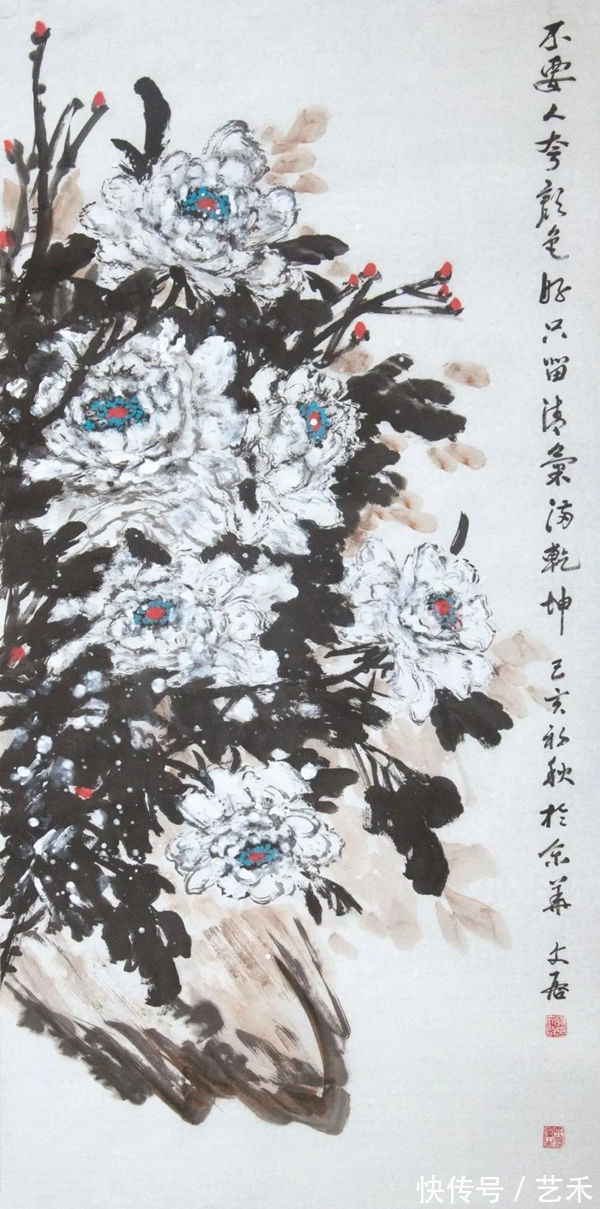 不要人夸颜色好只留清氣满乾坤 己亥初秋於京華 文
快传号 / 艺禾